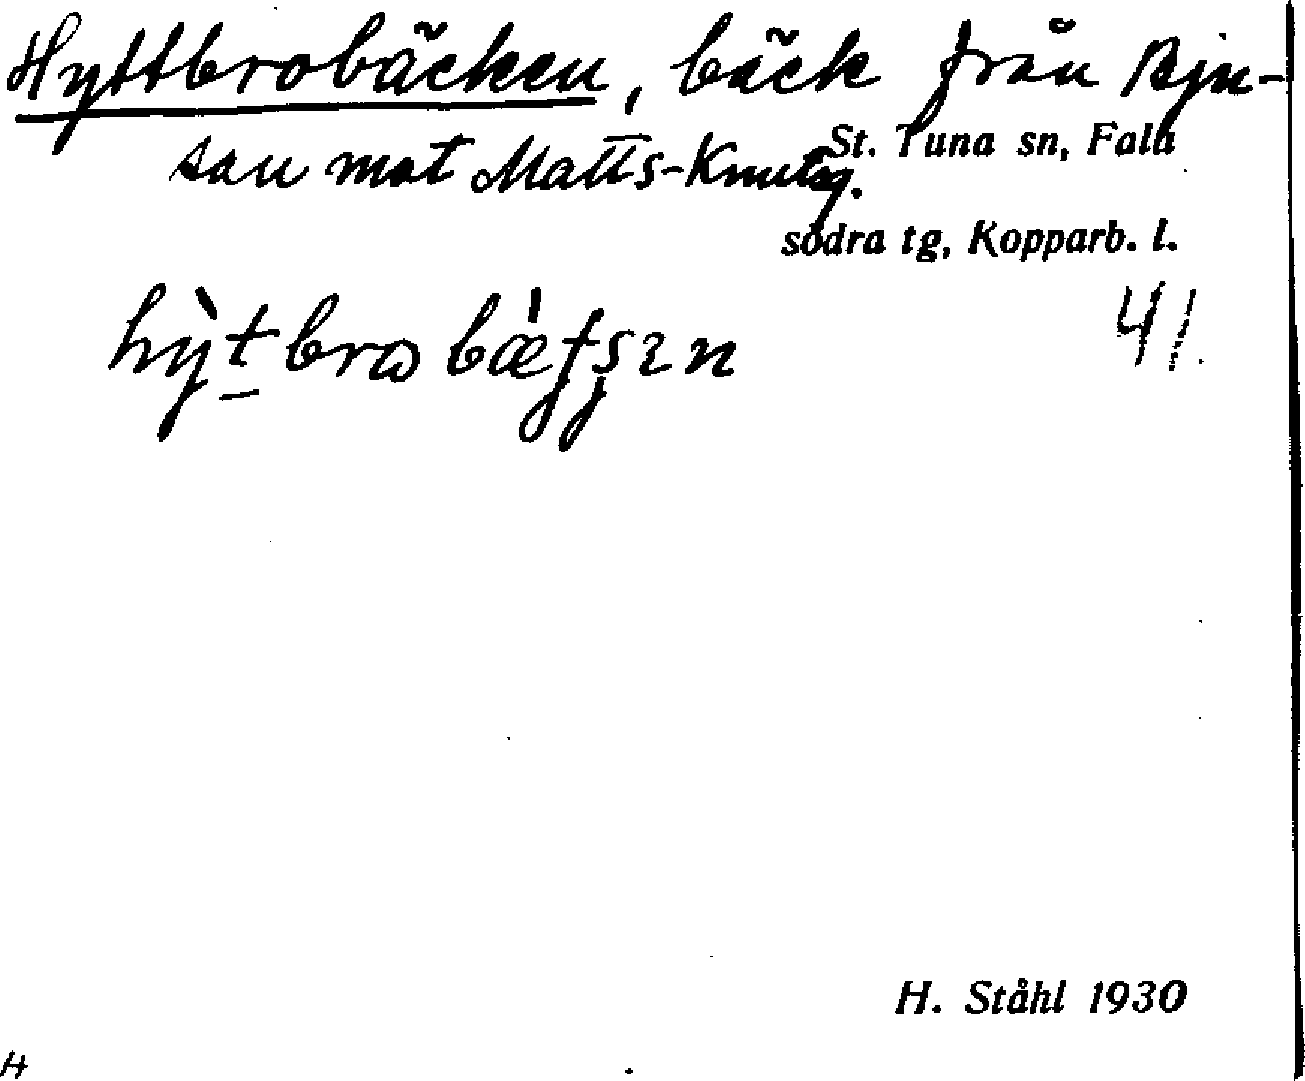 Hyttbrobäcken, bäck från Bju-
san mot Matts-Knuts.
St. Tuna sn, Falu
södra tg, Kopparb. l.
41.
H. Ståhl 1930
H